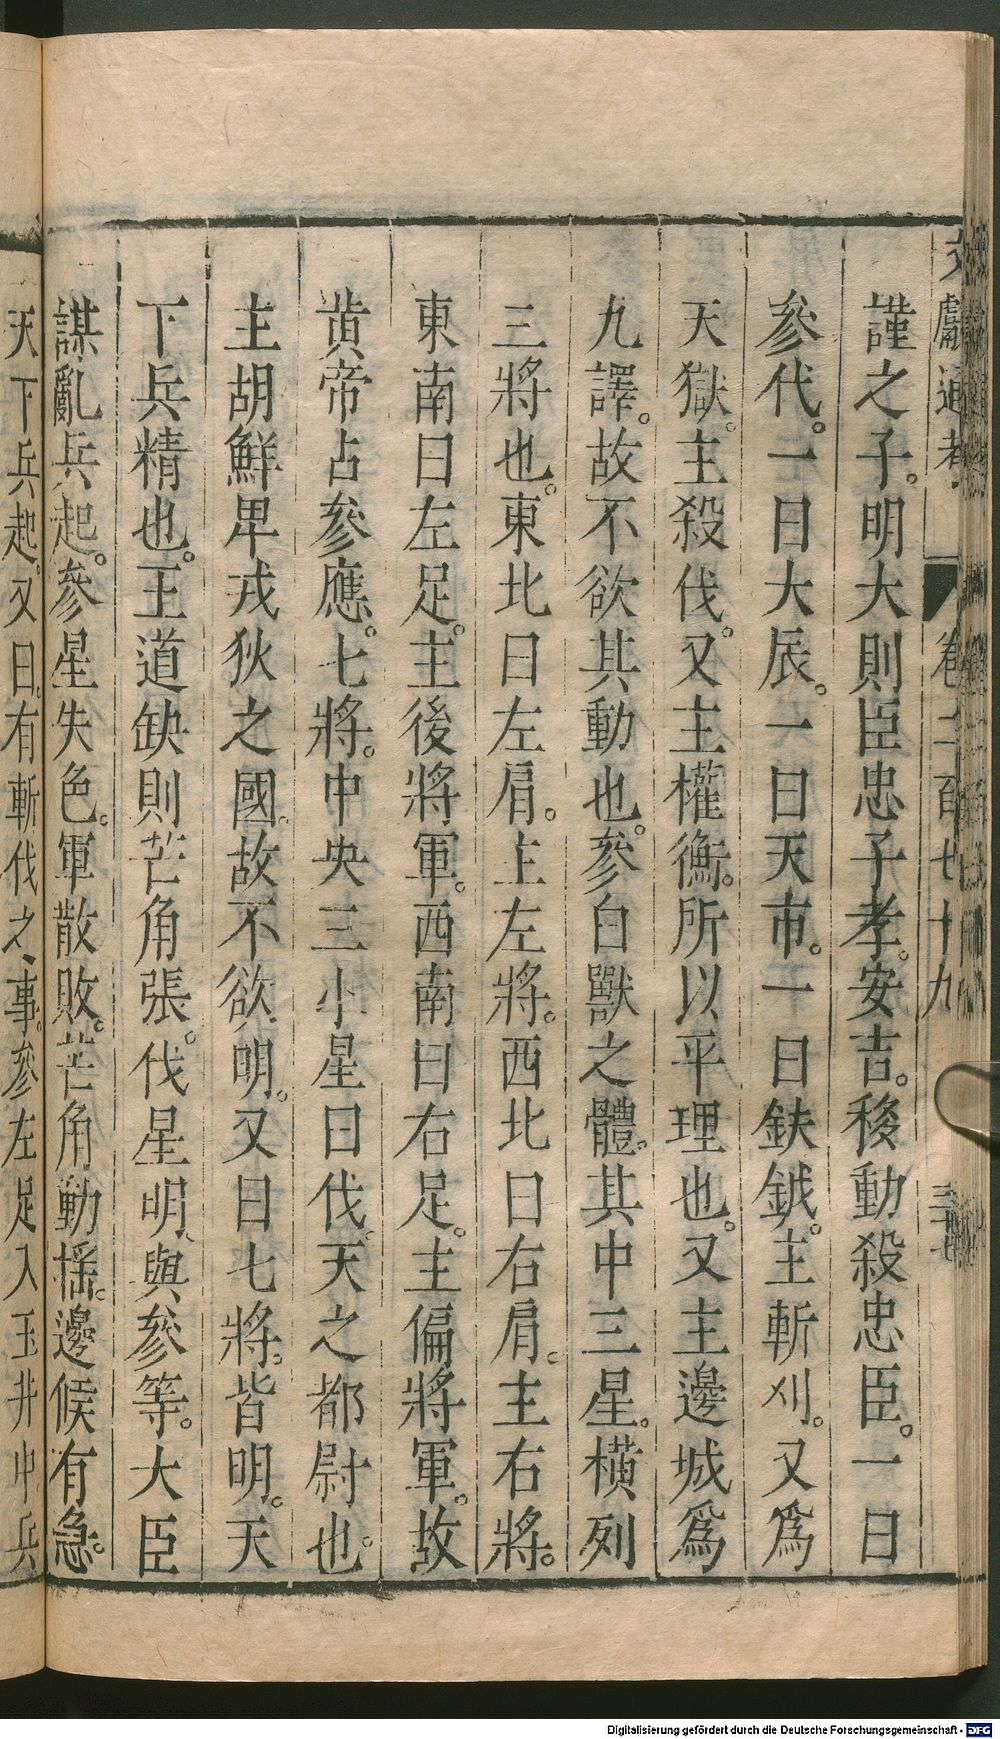 文獻通考 卷二百七十九
謹之子。明大則臣忠子孝。安吉。移動殺忠臣。一曰
參代。一曰大辰。一曰天市。一曰鈇鉞。主斬刈。又爲
天獄。主殺伐。又主權衡。所以平理也。又主邊城爲
九譯。故不欲其動也。參白獸之體。其中三星。橫列
三將也。東北曰左肩。主左將。西北曰右肩。主右將。
東南曰左足。主後將軍。西南曰右足。主偏將軍。故
黃帝占參應。七將。中央三小星曰伐。天之都尉也。
主胡鮮卑戎狄之國。故不欲明。又曰七將。皆明。天
下兵精也。王道缺則芒角張。伐星明。與參等。大臣
謀亂兵起。參星失色。軍散敗。芒角動搖。邊候有急。
天下兵起。又曰。有斬伐之事。參左足入玉井中兵
Digitalisierung gefördert durch die Deutsche Forschungsgemeinschaft - DFG